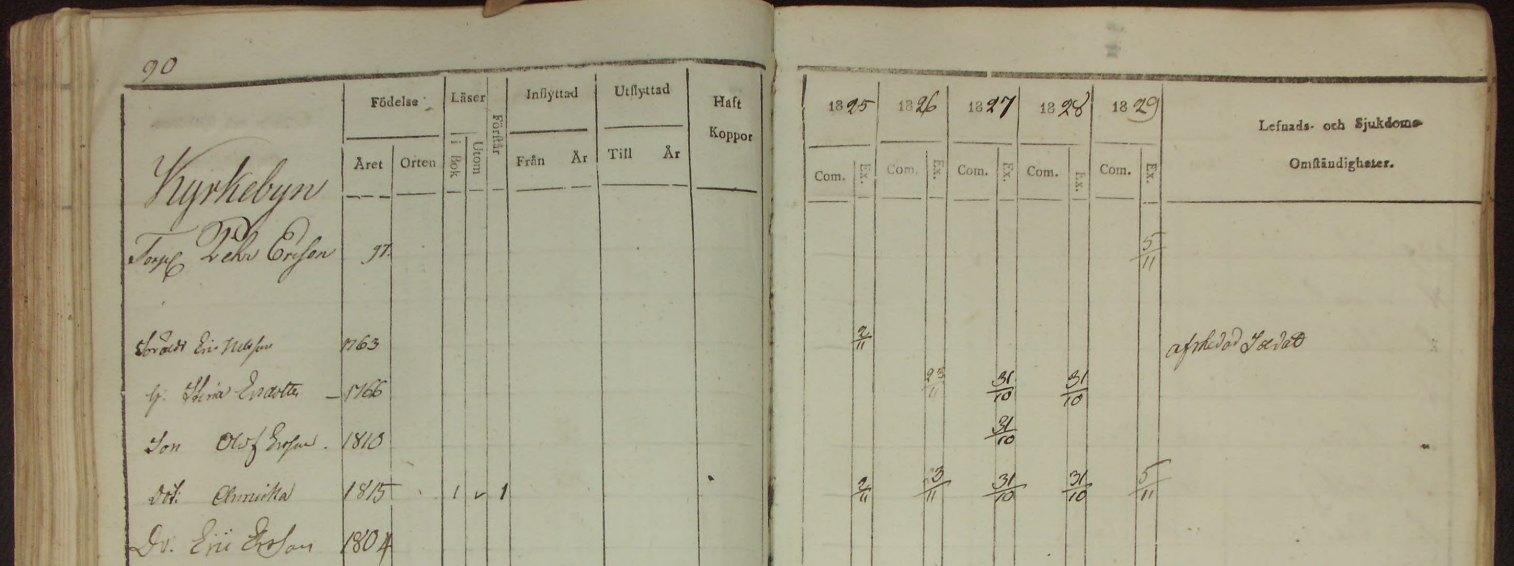 90
Födelse Läser Förstår Inflyttad Utflyttad Haft Koppor
Året Orten i Bok Utom Från År Till År
1825 1826 1827 1828 1829 Lefnads- och Sjukdoms-
Omständigheter.
Com. Ex. Com. Ex. Com. Ex. Com. Ex. Com. Ex.
Kyrkebyn
Torp Pehr Ersson 97. 5/11
Eric Nilsson 1763 2/11 afskedad Soldat
h. Stina Ersdotter 1766 23/11 31/10 31/10
Son Olof Ersson. 1810 31/10
dot. Annicka 1815 1 1 2/11 3/11 31/10 31/10 5/11
Dr. Eric Ersson 1804